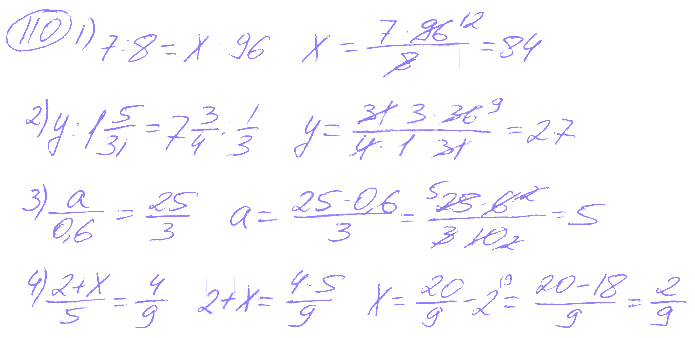 110 1) 7:8 = x:96 x = (7·96¹²)/8 = 84
2) y:1 5/31 = 7 3/4 : 1/3 y = (31·3·36⁹)/(4·1·31) = 27
3) a/0,6 = 25/3 a = (25·0,6)/3 = (⁵25·6²)/(3·10₂) = 5
4) (2+x)/5 = 4/9 2+x = (4·5)/9 x = 20/9 - 2⁽⁹ = (20-18)/9 = 2/9